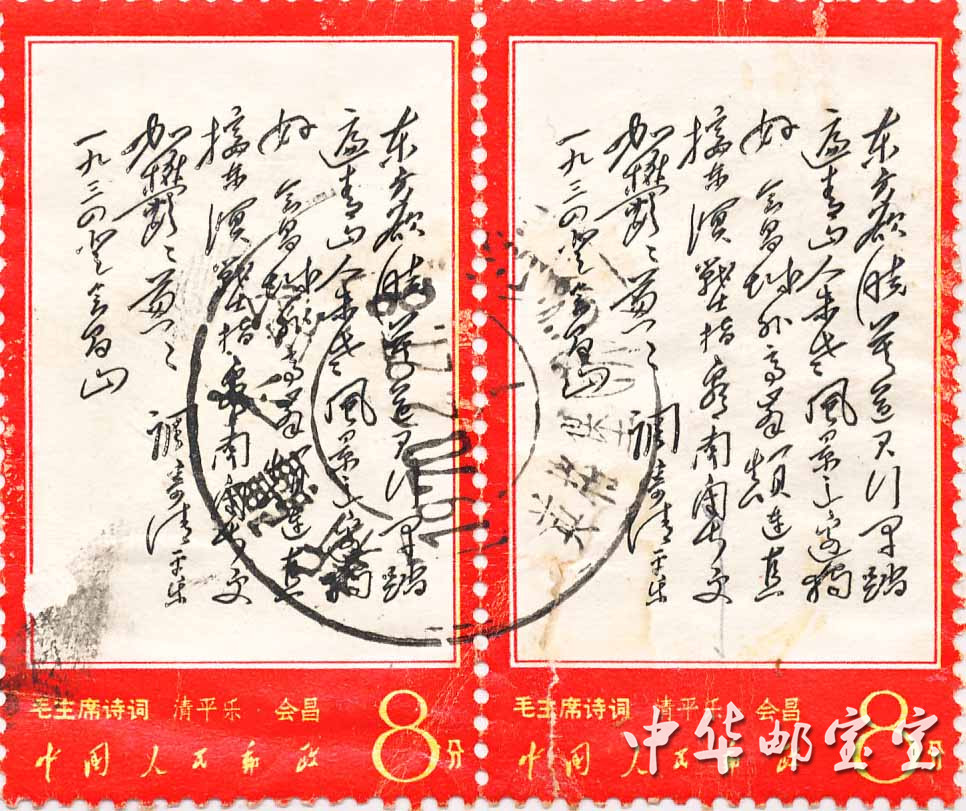 东方欲晓莫道君行早踏
遍青山人未老風景这边独
好会昌城外高峰颠连直
接东溟戰士指看南粤更
加欝々葱々
调寄清平乐
一九三四登会昌山
毛主席诗词 清平乐·会昌
中国人民邮政
8分
东方欲晓莫道君行早踏
遍青山人未老風景这边独
好会昌城外高峰颠连直
接东溟戰士指看南粤更
加欝々葱々
调寄清平乐
一九三四登会昌山
毛主席诗词 清平乐·会昌
中国人民邮政
8分
中华邮宝室